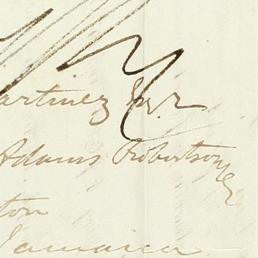 artinez Esqr
Adams Robertson
ton
Jamaica